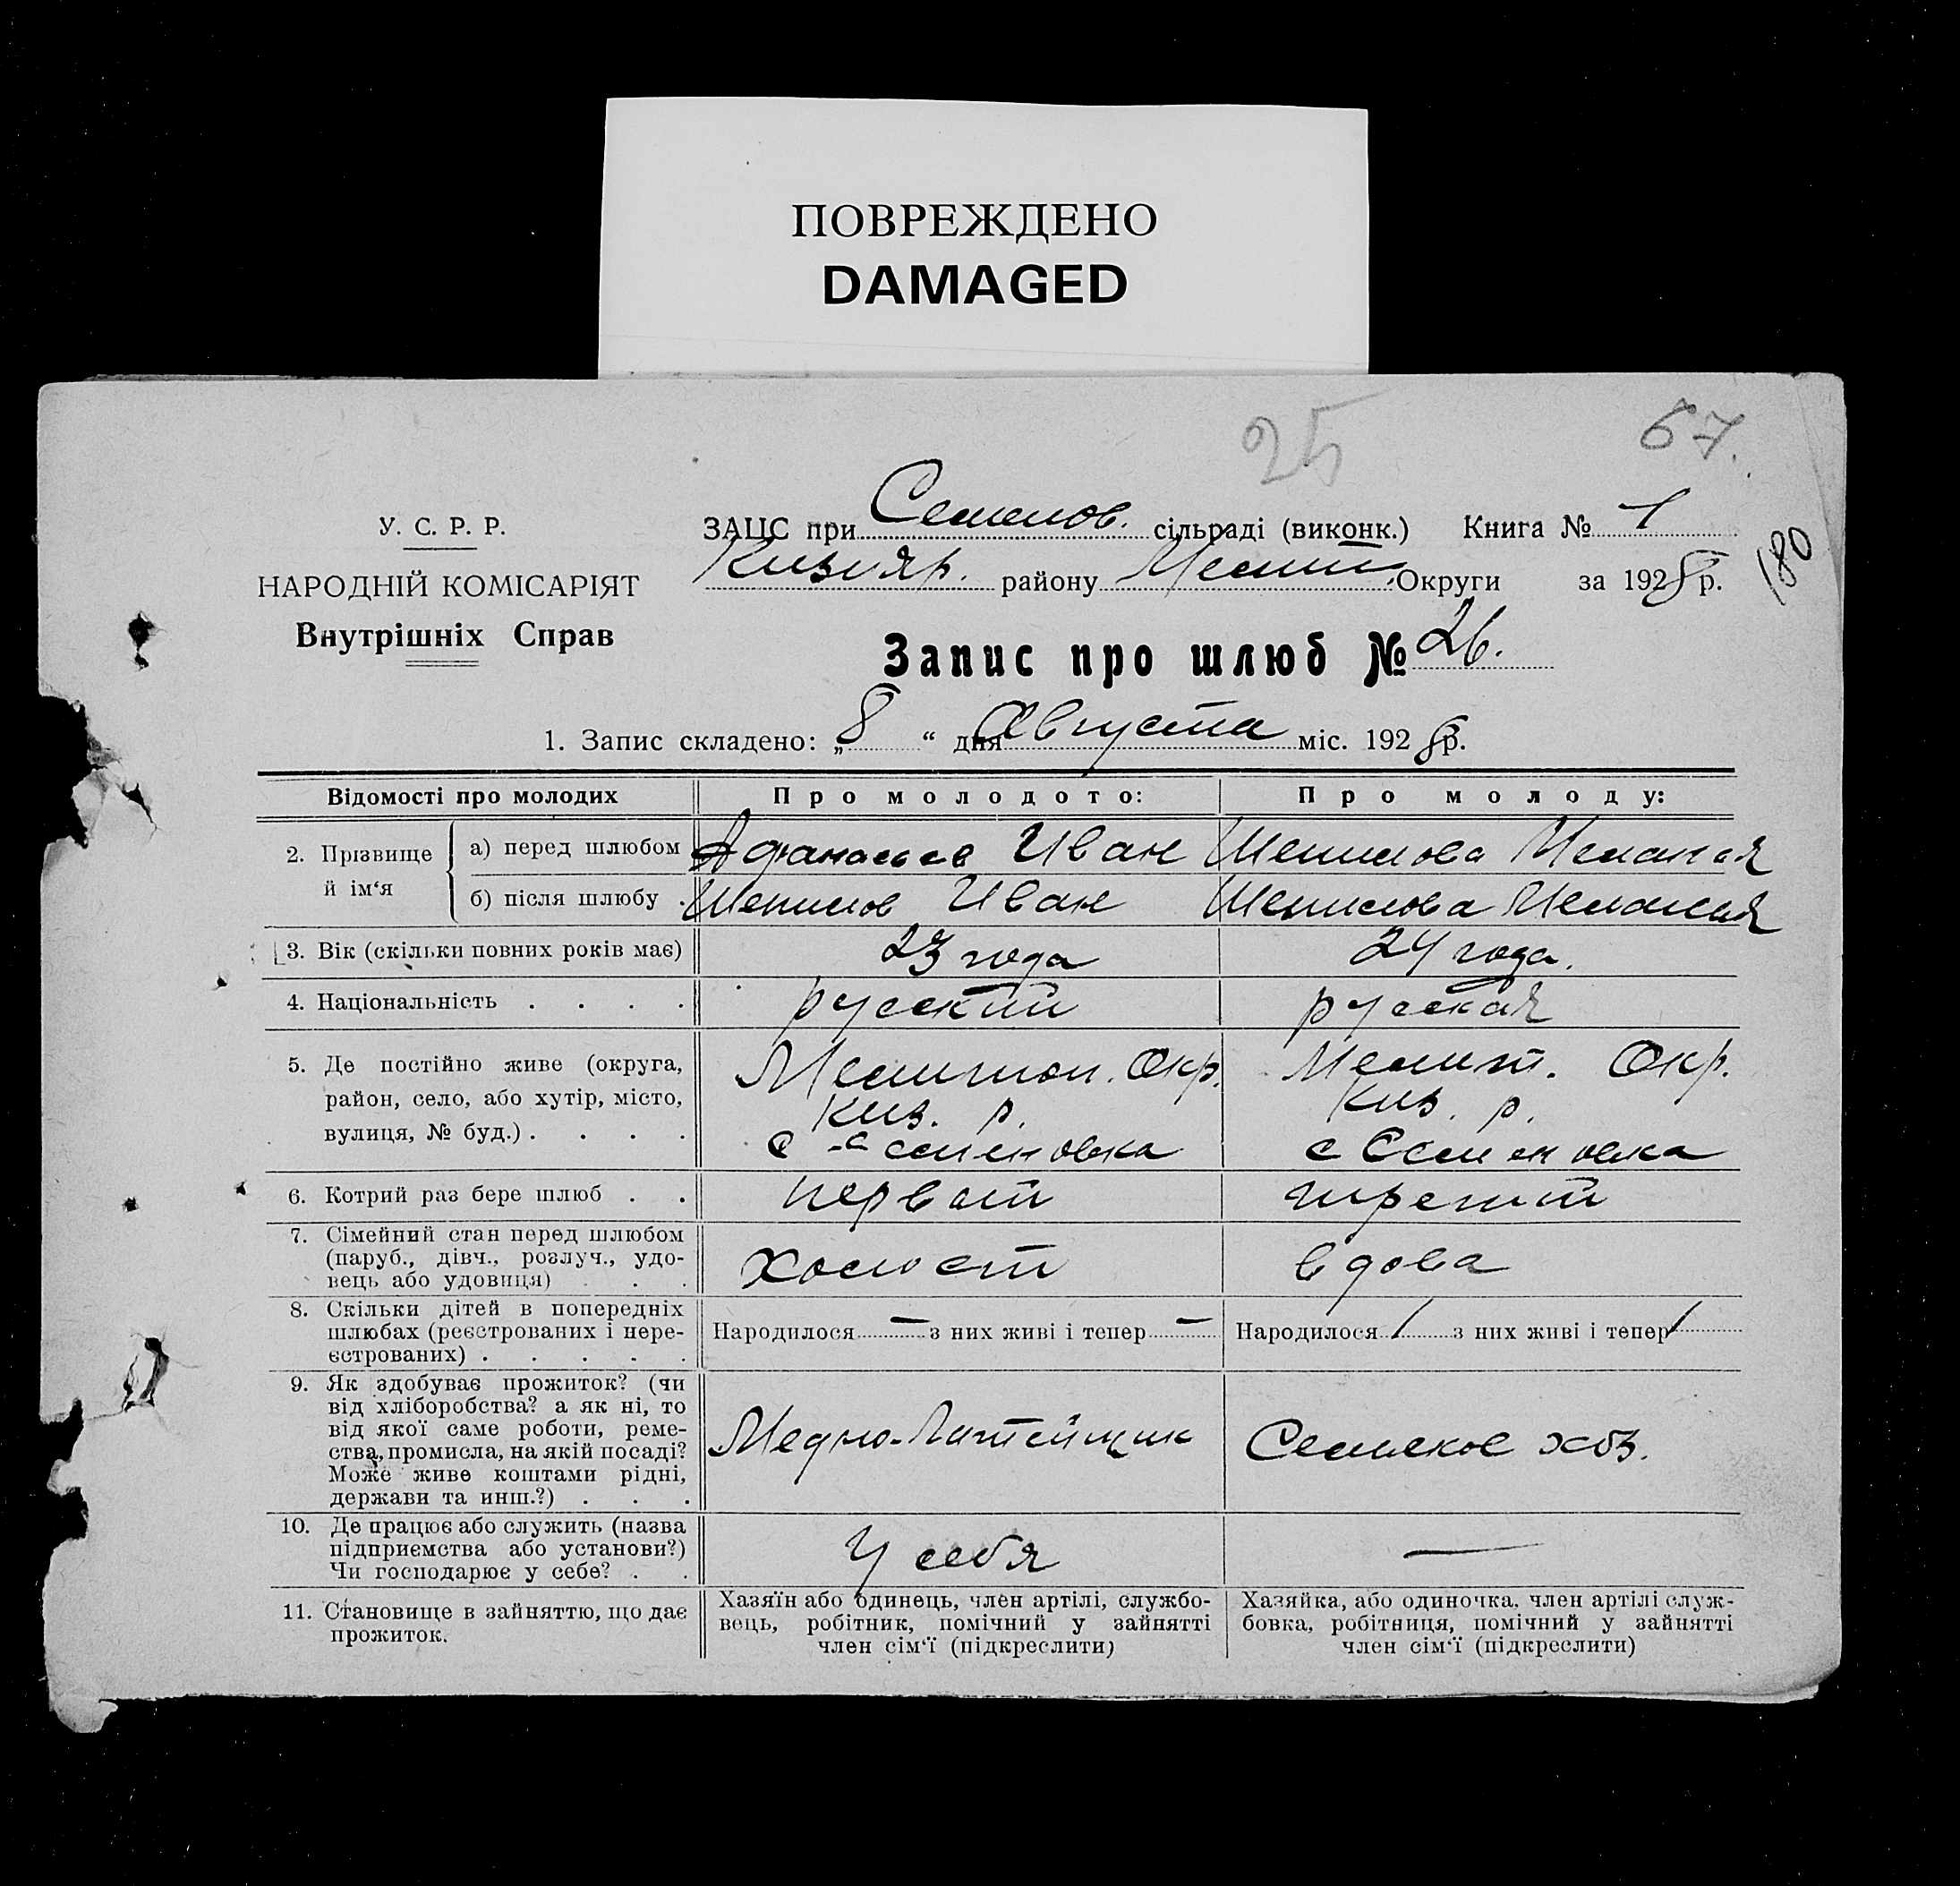 ПОВРЕЖДЕНО
DAMAGED
25
67.
У. С. Р. Р.
НАРОДНІЙ КОМІСАРІЯТ
Внутрішніх Справ
ЗАЦС при Семенов. сільраді (виконк.) Книга № 1
Кизияр. району Мелит. Округи за 1928 р.
180
Запис про шлюб № 26.
1. Запис складено: „ 8 “ дня Августа міс. 1928 р.
Відомості про молодих
Про молодого:
Про молоду:
2. Прізвище й ім‘я
а) перед шлюбом
Афанасьев Иван
Шепилова Мелания
б) після шлюбу .
Шепилов Иван
Шепилова Мелания
3. Вік (скільки повних років має)
23 года
24 года.
4. Національність . . . .
русский
русская
5. Де постійно живе (округа,
район, село, або хутір, місто,
вулиця, № буд.) . . . .
Мелитоп. Окр.
Киз. р.
с Семеновка
Мелит. Окр.
Киз. р.
с Семеновка
6. Котрий раз бере шлюб . .
первый
третий
7. Сімейний стан перед шлюбом
(паруб., дівч., розлуч., удо-
вець або удовиця) . . .
Холост
вдова
8. Скільки дітей в попередніх
шлюбах (реєстрованих і нере-
єстрованих) . . . . .
Народилося — з них живі і тепер —
Народилося 1 з них живі і тепер 1
9. Як здобуває прожиток? (чи
від хліборобства? а як ні, то
від якої саме роботи, реме-
ства, промисла, на якій посаді?
Може живе коштами рідні,
держави та инш.?) . . .
Медно-Литейщик
Сельское хоз.
10. Де працює або служить (назва
підприємства або установи?)
Чи господарює у себе? . .
У себя
—
11. Становище в зайняттю, що дає
прожиток.
Хазяїн або одинець, член артілі, службо-
вець, робітник, помічний у зайнятті
член сім‘ї (підкреслити)
Хазяйка, або одиночка, член артілі служ-
бовка, робітниця, помічний у зайнятті
член сім‘ї (підкреслити)